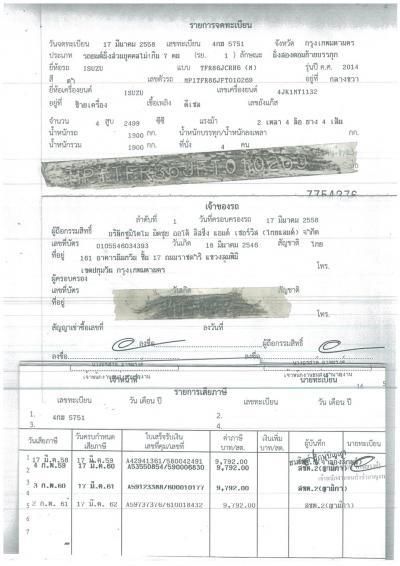 รายการจดทะเบียน
วันจดทะเบียน 17 มีนาคม 2558 เลขทะเบียน 4กฮ 5751 จังหวัด กรุงเทพมหานคร
ประเภท รถยนต์นั่งส่วนบุคคลไม่เกิน 7 คน (รย. 1) ลักษณะ นั่งสองตอนท้ายบรรทุก
ยี่ห้อรถ ISUZU แบบ TFR86JCRH6 (M) รุ่นปี ค.ศ. 2014
สี ดำ เลขตัวรถ MP1TFR86JFT010269 อยู่ที่ กลางขวา
ยี่ห้อเครื่องยนต์ ISUZU เลขเครื่องยนต์ 4JK1NT1132
อยู่ที่ ซ้ายเครื่อง เชื้อเพลิง ดีเซล เลขถังแก๊ส
จำนวน 4 สูบ 2499 ซีซี แรงม้า 2 เพลา 4 ล้อ ยาง 4 เส้น
น้ำหนักรถ 1900 กก. น้ำหนักบรรทุก/น้ำหนักลงเพลา กก.
น้ำหนักรวม 1900 กก. ที่นั่ง 4 คน
7754276
เจ้าของรถ
ลำดับที่ 1 วันที่ครอบครองรถ 17 มีนาคม 2558
ผู้ถือกรรมสิทธิ์ บริษัทซูมิโตโม มิตซุย ออโต้ ลิสซิ่ง แอนด์ เซอร์วิส (ไทยแลนด์) จำกัด
เลขที่บัตร 0105546034393 วันเกิด 18 มีนาคม 2546 สัญชาติ ไทย
ที่อยู่ 161 อาคารนันทวัน ชั้น 17 ถนนราชดำริ แขวงลุมพินี
เขตปทุมวัน กรุงเทพมหานคร โทร.
ผู้ครอบครอง
เลขที่บัตร วันเกิด สัญชาติ
ที่อยู่ โทร.
สัญญาเช่าซื้อเลขที่ ลงวันที่ ผู้ถือกรรมสิทธิ์
ลงชื่อ ลงชื่อ
เจ้าหน้าที่ นายทะเบียน
รายการเสียภาษี
เลขทะเบียน วัน เดือน ปี เลขทะเบียน วัน เดือน ปี
1. 4กฮ 5751 2.
3. 4.
วันเสียภาษี วันครบกำหนดเสียภาษี ใบเสร็จรับเงินเลขที่/เล่มที่ ค่าภาษีบาท/สต. เงินเพิ่มบาท/สต. ผู้บันทึก นายทะเบียน
17 มี.ค.58 17 มี.ค.59 A42941361/580042491 9,792.00
4 ก.พ.59 17 มี.ค.60 A53550854/590006830 9,792.00 สขต.2
3 ก.พ.60 17 มี.ค.61 A59123388/600010177 9,792.00 สขต.2
2 ก.พ. 61 17 มี.ค. 62 A59737376/610018432 9,792.00 สขต.2